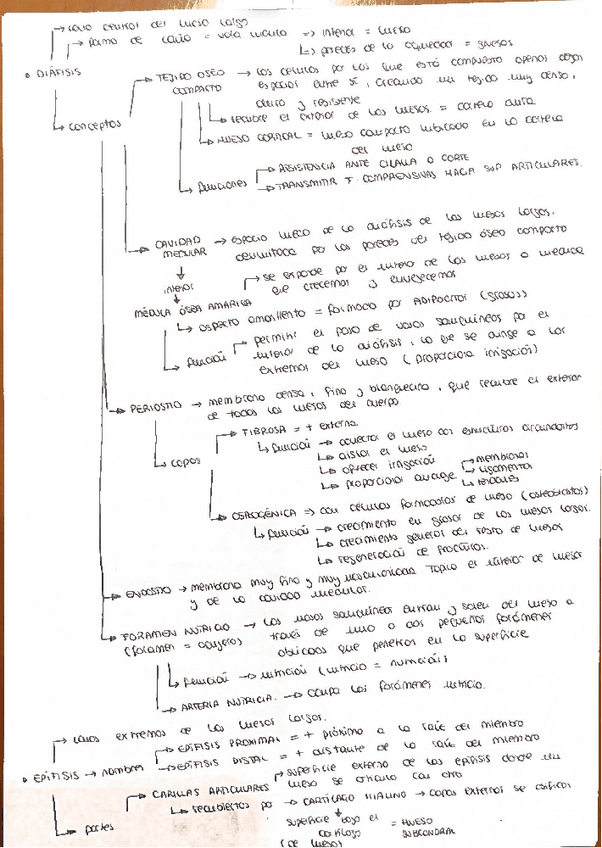 → zona central del hueso largo
→ forma de caña = vista interna → interior = hueco
↳ paredes de la oquedad = gruesas
• DIÁFISIS
↳ conceptos
→ TEJIDO ÓSEO COMPACTO → las células por las que está compuesto apenas dejan
espacios entre sí, creando un tejido muy denso,
duro y resistente
↳ recubre el exterior de los huesos = corteza dura
↳ HUESO CORTICAL = hueso compacto ubicado en la corteza
del hueso
↳ funciones → RESISTENCIA ANTE CIZALLA O CORTE
→ TRANSMITIR F. COMPRENSIVAS HACIA SUP ARTICULARES.
→ CAVIDAD MEDULAR → espacio hueco de la diáfisis de los huesos largos,
delimitada por las paredes del tejido óseo compacto
↓
interior
↓
→ se expande por el interior de los huesos a medida
que crecemos y envejecemos
MÉDULA ÓSEA AMARILLA
↳ aspecto amarillento = formada por ADIPOCITOS (grasas)
↳ función → permitir el paso de vasos sanguíneos por el
interior de la diáfisis, lo que se dirige a los
extremos del hueso (proporciona irrigación)
→ PERIOSTIO → membrana densa, fina y blanquecina, que recubre el exterior
de todos los huesos del cuerpo
↳ capas
→ FIBROSA = + externa
↳ función → conectar el hueso con estructuras circundantes
↳ aislar el hueso
↳ ofrecer irrigación
↳ proporcionar anclaje → membranas
→ ligamentos
↳ tendones
↳ OSTEOGÉNICA ⇒ con células formadoras de hueso (osteoblastos)
↳ función → crecimiento en grosor de los huesos largos.
↳ crecimiento general del resto de huesos
↳ regeneración de fracturas.
→ ENDOSTIO → membrana muy fina y muy vascularizada. Tapiza el interior de huesos
y de la cavidad medular.
→ FORAMEN NUTRICIO → Los vasos sanguíneos entran y salen del hueso a
(foramen = agujero) través de uno o dos pequeños forámenes
oblicuos que penetran en la superficie
↳ función → nutrición (nutricio = nutrición)
↳ ARTERIA NUTRICIA. → ocupa los forámenes nutricio.
→ extremos de los huesos largos.
• EPÍFISIS → nombres → EPÍFISIS PROXIMAL = + próximo a la raíz del miembro
→ EPÍFISIS DISTAL = + distante de la raíz del miembro
↳ partes
→ CARILLAS ARTICULARES → superficie externa de las epífisis donde un
hueso se articula con otro
↳ recubiertas por → CARTÍLAGO HIALINO → capas externas se
↓
superficie bajo el = HUESO
cartílago SUBCONDRAL
(de hueso)